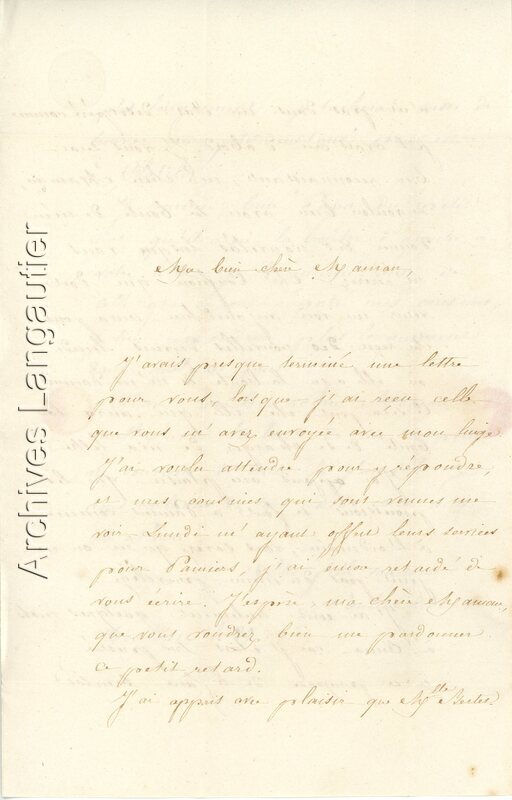 Archives Langautier
Ma bien chère Maman,
J'avais presque terminé une lettre
pour vous, lorsque j'ai reçu celle
que vous m'avez envoyée avec mon linge.
J'ai voulu attendre pour y répondre,
et mes cousines qui sont venues me
voir Lundi m'ayant offert leurs services
pour Pamiers, j'ai encore retardé de
vous écrire. J'espère, ma chère Maman,
que vous voudrez bien me pardonner
ce petit retard.
J'ai appris avec plaisir que